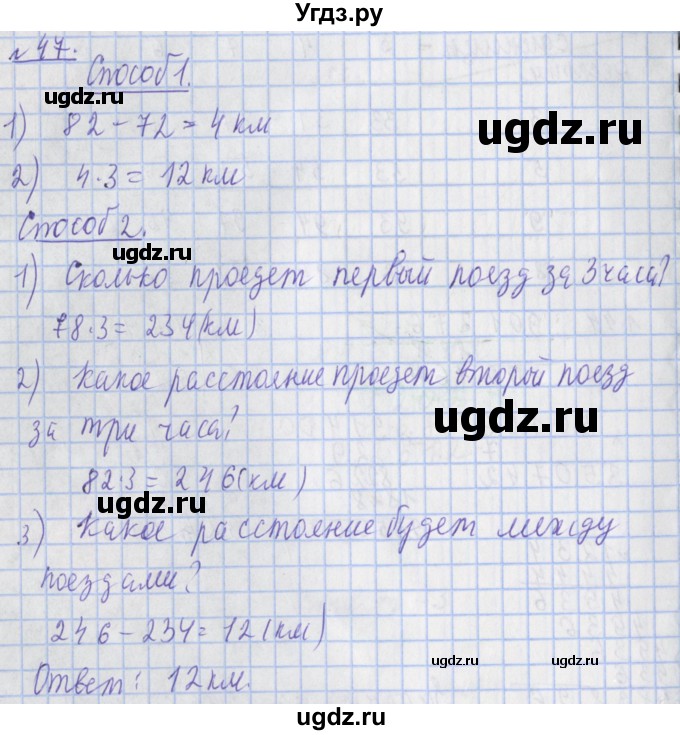 Угдз.ру
№ 47.
Способ 1.
1) 82 - 72 = 4 км
2) 4·3 = 12 км
Способ 2.
1) Сколько проедет первый поезд за 3 часа?
78·3 = 234(км)
2) Какое расстояние проедет второй поезд
за три часа?
82·3 = 246(км)
3) Какое расстояние будет между
поездами?
246 - 234 = 12(км)
Ответ: 12 км.
ugdz.ru
ugdz.ru
ugdz.ru
ugdz.ru
ugdz.ru
ugdz.ru
ugdz.ru
ugdz.ru
ugdz.ru
ugdz.ru